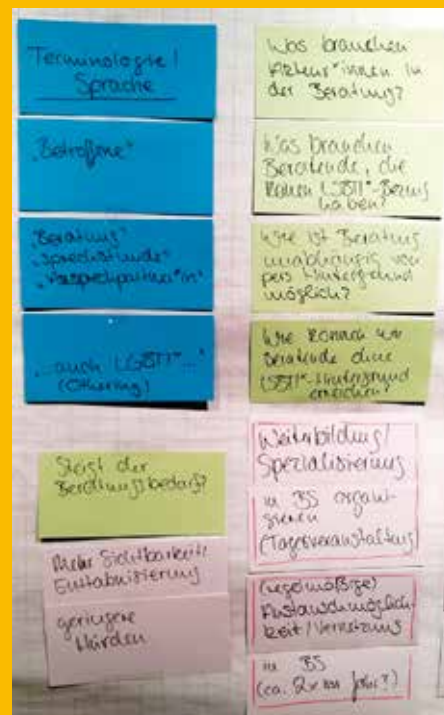 Terminologie /
Sprache
„Betroffene"
„Beratung"
„Sprechstunde"
„Ansprechpartner*in"
„...auch LGBTI*..."
(Othering)
Steigt der
Beratungsbedarf?
Mehr Sichtbarkeit/
Enttabuisierung
geringere
Hürden
Was brauchen
Akteur*innen in
der Beratung?
Was brauchen
Beratende, die
keinen LSBTI*-Bezug
haben?
Wie ist Beratung
unabhängig von
pers Hintergrund
möglich?
Wie können wir
Beratende ohne
LSBTI*-Hintergrund
erreichen?
Weiterbildung/
Spezialisierung
in BS organi-
sieren
(Tagesveranstaltung)
(regelmäßige)
Austauschmöglich-
keit/Vernetzung
in BS
(ca. 2x im Jahr?)